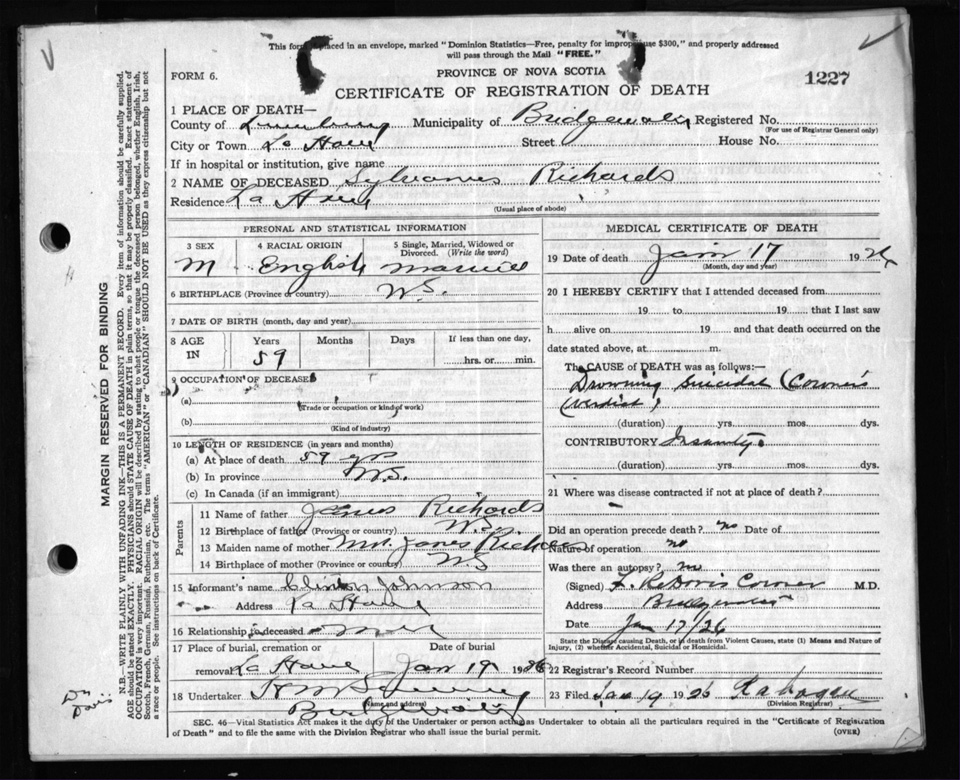 This form placed in an envelope, marked "Dominion Statistics—Free, penalty for improper use $300," and properly addressed
will pass through the Mail "FREE."
FORM 6.
PROVINCE OF NOVA SCOTIA
1227
CERTIFICATE OF REGISTRATION OF DEATH
1 PLACE OF DEATH—
County of Lunenburg Municipality of Bridgewater Registered No.
(For use of Registrar General only)
City or Town La Have Street House No.
If in hospital or institution, give name
2 NAME OF DECEASED Sylvanus Richards
Residence La Have
(Usual place of abode)
PERSONAL AND STATISTICAL INFORMATION
3 SEX 4 RACIAL ORIGIN 5 Single, Married, Widowed or Divorced. (Write the word)
M English Married
6 BIRTHPLACE (Province or country) N.S.
7 DATE OF BIRTH (month, day and year)
8 AGE IN Years Months Days If less than one day,
59 hrs. or min.
9 OCCUPATION OF DECEASED
(a)
(Trade or occupation or kind of work)
(b)
(Kind of industry)
10 LENGTH OF RESIDENCE (in years and months)
(a) At place of death 59 yrs
(b) In province N.S.
(c) In Canada (if an immigrant)
Parents
11 Name of father James Richards
12 Birthplace of father (Province or country) N.S.
13 Maiden name of mother Mrs. James Richards
14 Birthplace of mother (Province or country) N.S
15 Informant's name Clinton Johnson
Address La Have
16 Relationship to deceased
17 Place of burial, cremation or Date of burial
removal La Have Jan 19 1926
18 Undertaker
(Name and address)
Bridgewater
MEDICAL CERTIFICATE OF DEATH
19 Date of death Jan 17 1926
(Month, day and year)
20 I HEREBY CERTIFY that I attended deceased from
19 to 19 that I last saw
h alive on 19 and that death occurred on the
date stated above, at m.
The CAUSE of DEATH was as follows:—
Drowning Suicidal (Coroner's
Verdict)
(duration) yrs. mos. dys.
CONTRIBUTORY Insanity.
(duration) yrs. mos. dys.
21 Where was disease contracted if not at place of death?
Did an operation precede death? no Date of
Nature of operation no
Was there an autopsy? no
(Signed) Coroner M.D.
Address Bridgewater
Date Jan 17/26
State the Disease causing Death, or in death from Violent Causes, state (1) Means and Nature of
Injury, (2) whether Accidental, Suicidal or Homicidal.
22 Registrar's Record Number
23 Filed Jan 19 1926
(Division Registrar)
SEC. 46—Vital Statistics Act makes it the duty of the Undertaker or person acting as Undertaker to obtain all the particulars required in the "Certificate of Registration
of Death" and to file the same with the Division Registrar who shall issue the burial permit.
(OVER)
MARGIN RESERVED FOR BINDING
N.B.—WRITE PLAINLY WITH UNFADING INK—THIS IS A PERMANENT RECORD. Every item of information should be carefully supplied.
AGE should be stated EXACTLY. PHYSICIANS should STATE CAUSE OF DEATH in plain terms, so that it may be properly classified. Exact statement of
OCCUPATION is very important. RACIAL ORIGIN will be described by stating to what people or tongue the deceased person belonged, whether English, Irish,
Scotch, French, German, Russian, Ruthenian, etc. The terms "AMERICAN" or "CANADIAN" SHOULD NOT BE USED as they express citizenship but not
a race or people. See instructions on back of Certificate.
Dr
Davis